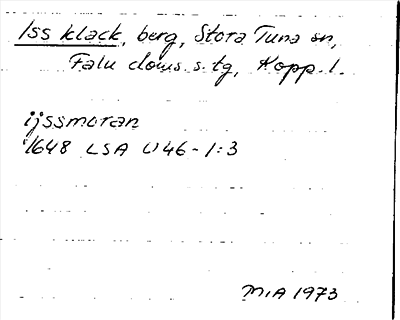 Iss klack, berg, Stora Tuna sn,
Falu doms. s. tg, Kopp. l.
ijssmoran
1648 LSA U46-1:3
M.A 1973